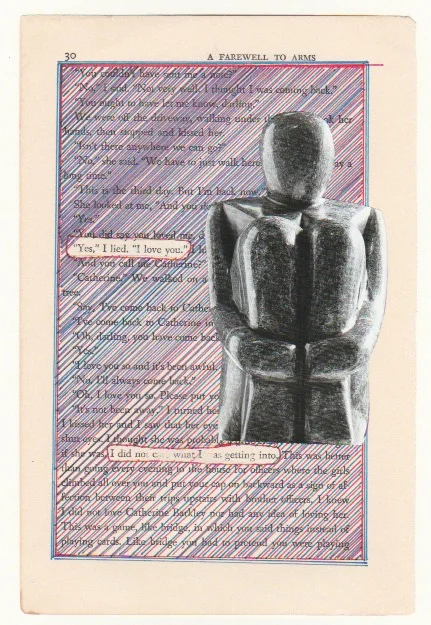 30 A FAREWELL TO ARMS
"You couldn't have sent me a note?"
"No," I said. "Not very well. I thought I was coming back."
"You ought to have let me know, darling."
We were off the driveway, walking under th k her
hands, then stopped and kissed her.
"Isn't there anywhere we can go?"
"No," she said. "We have to just walk here ay a
long time."
"This is the third day. But I'm back now."
She looked at me, "And you
"Yes."
"You did say you loved me, d
"Yes," I lied. "I love you."
"And you call me Catherine?"
"Catherine." We walked on a
tree.
"Say, 'I've come back to Cathe
"I've come back to Catherine in
"Oh, darling, you have come back
"Yes."
"I love you so and it's been awful.
"No. I'll always come back."
"Oh, I love you so. Please put yo
"It's not been away." I turned he
I kissed her and I saw that her eye
shut eyes. I thought she was probabl
if she was. I did not what I as getting into. This was better
than going every evening to the house for officers where the girls
climbed all over you and put your cap on backward as a sign of af-
fection between their trips upstairs with brother officers. I knew
I did not love Catherine Barkley nor had any idea of loving her.
This was a game, like bridge, in which you said things instead of
playing cards. Like bridge you had to pretend you were playing